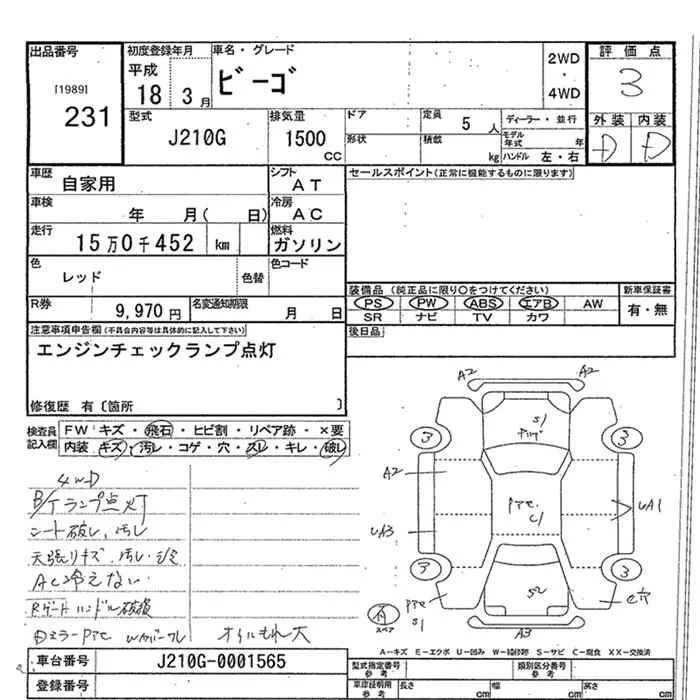 出品番号 初度登録年月 車名・グレード 2WD・4WD 評価点
[1989] 231 平成18 3月 ビーゴ 3
型式 J210G 排気量 1500cc ドア 形状 定員 5人 積載 kg ディーラー・並行 モデル年式 年 ハンドル 左・右 外装 D 内装 D
車歴 自家用 シフト AT セールスポイント(正常に機能するものに限ります)
車検 年 月( 日) 冷房 AC
走行 15万0千452 km 燃料 ガソリン
色 レッド 色替 色コード
R券 9,970円 名変通知期限 月 日
装備品 (純正品に限り○をつけてください) 新車保証書
PS PW ABS エアB AW 有・無
SR ナビ TV カワ
注意事項申告欄(不具合内容等は具体的に記入して下さい) 後日品
エンジンチェックランプ点灯
修復歴 有〔箇所 〕
検査員記入欄 FW キズ・飛石・ヒビ割・リペア跡・×要
内装 キズ・汚レ・コゲ・穴・スレ・キレ・破レ
4WD
B/Tランプ点灯
シート破レ、汚レ
天張リキズ、汚レ・シミ
AC冷えない
Rゲートハンドル破損
オイルもれ大
A2
A2
S1
3
3
A2
UA1
UA3
C1
3
3
S2
S1
A3
スペア
A-キズ E-エクボ U-凹み W-補修跡 S-サビ C-腐食 XX-交換済
車台番号 J210G-0001565 型式指定番号 参考 類別区分番号 参考
登録番号 車庫証明用 参考 長さ cm 幅 cm 高さ cm